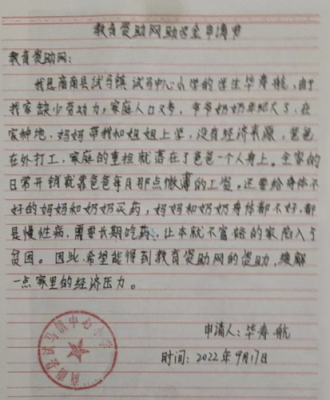 教育资助网助学金申请书
教育资助网:
我是商南县试马镇试马中心小学的学生毕寿航,由于
我家缺少劳动力,家庭人口又多,爷爷奶奶年纪大了,在
家种地,妈妈带我和姐姐上学,没有经济来源,爸爸
在外打工,家庭的重担就落在了爸爸一个人身上。全家的
日常开销就靠爸爸每月那点微薄的工资。还要给身体不
好的妈妈和奶奶买药,妈妈和奶奶身体都不好,都
是慢性病,需要长期吃药,让本就不富裕的家陷入了
贫困。因此,希望能得到教育资助网的资助,缓解
一点家里的经济压力。
申请人:毕寿航
时间:2022年9月17日
商南县试马镇中心小学